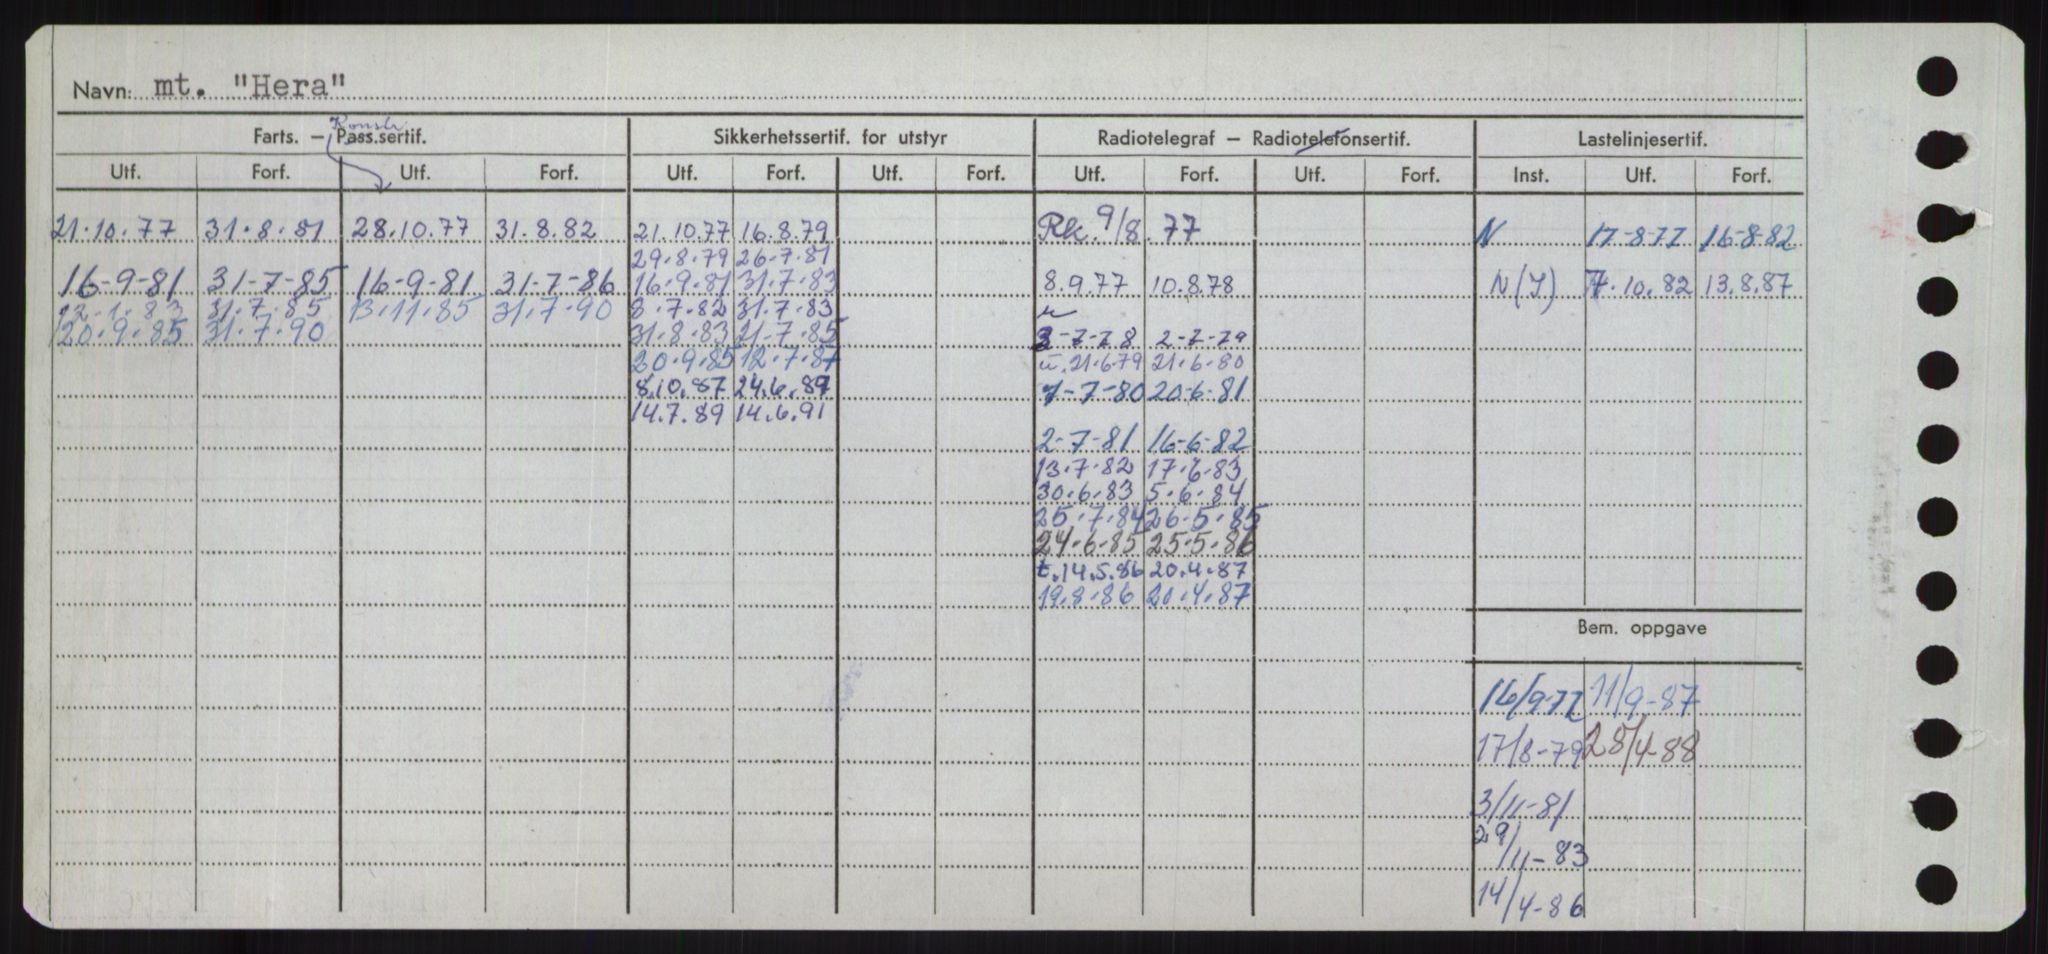 Navn: mt. "Hera"
Konstr
Farts. — Pass.sertif. Sikkerhetssertif. for utstyr Radiotelegraf — Radiotelefonsertif. Lastelinjesertif.
Utf. Forf. Utf. Forf. Utf. Forf. Utf. Forf. Utf. Forf. Utf. Forf. Inst. Utf. Forf.
21.10.77 31.8.81 28.10.77 31.8.82 21.10.77 16.8.79 Rk. 9/8.77 N 17-8-77 16-8-82
29.8.79 26.7.81
16-9-81 31-7-85 16-9-81 31-7-86 16.9.81 31.7.83 8.9.77 10.8.78 N(Y) 7.10.82 13.8.87
12.1.83 31.7.85 13.11.85 31.7.90 8.7.82 31.7.83 u
20.9.85 31.7.90 31.8.83 21.7.85 3-7-78 2-7-79
20.9.85 12.7.87 u.21.6.79 21.6.80
8.10.87 24.6.89 7-7-80 20-6-81
14.7.89 14.6.91
2-7-81 16-6-82
13.7.82 17.6.83
30.6.83 5.6.84
25.7.84 26.5.85
24.6.85 25.5.86
t.14.5.86 20.4.87
19.8.86 20.4.87
Bem. oppgave
16/9-77 11/9-87
17/8-79 28/4-88
3/11-81
29/11-83
14/4-86